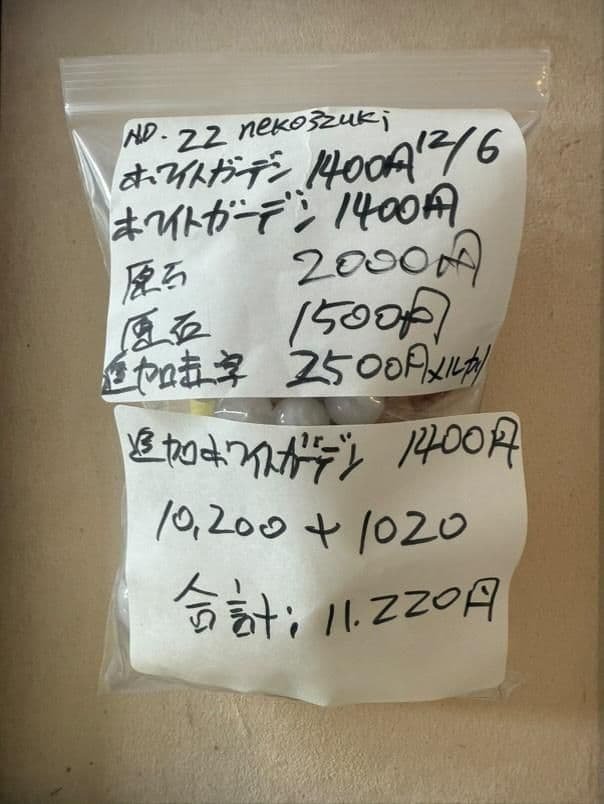 NO.22 nekozuki
ホワイトガーデン 1400円 12/6
ホワイトガーデン 1400円
原石 2000円
原石 1500円
追加赤字 2500円メルカリ
追加ホワイトガーデン 1400円
10,200 + 1020
合計; 11.220円